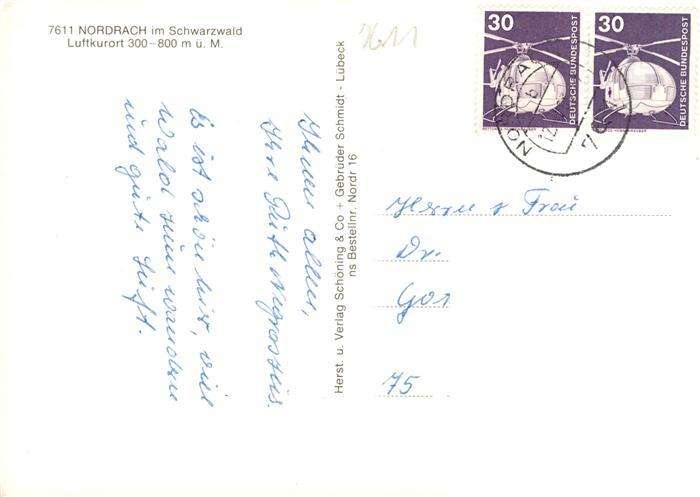 7611 NORDRACH im Schwarzwald
Luftkurort 300–800 m ü. M.
Es ist schön hier, viel
Wald zum wandern
und gute Luft.
Ihnen allen,
Ihre Ruth
Herst. u. Verlag Schöning & Co + Gebrüder Schmidt - Lübeck
ns Bestellnr. Nordr 16
7611
30
DEUTSCHE BUNDESPOST
30
DEUTSCHE BUNDESPOST
NORDRA
b
12.
76
Herrn u Frau
Dr.
75